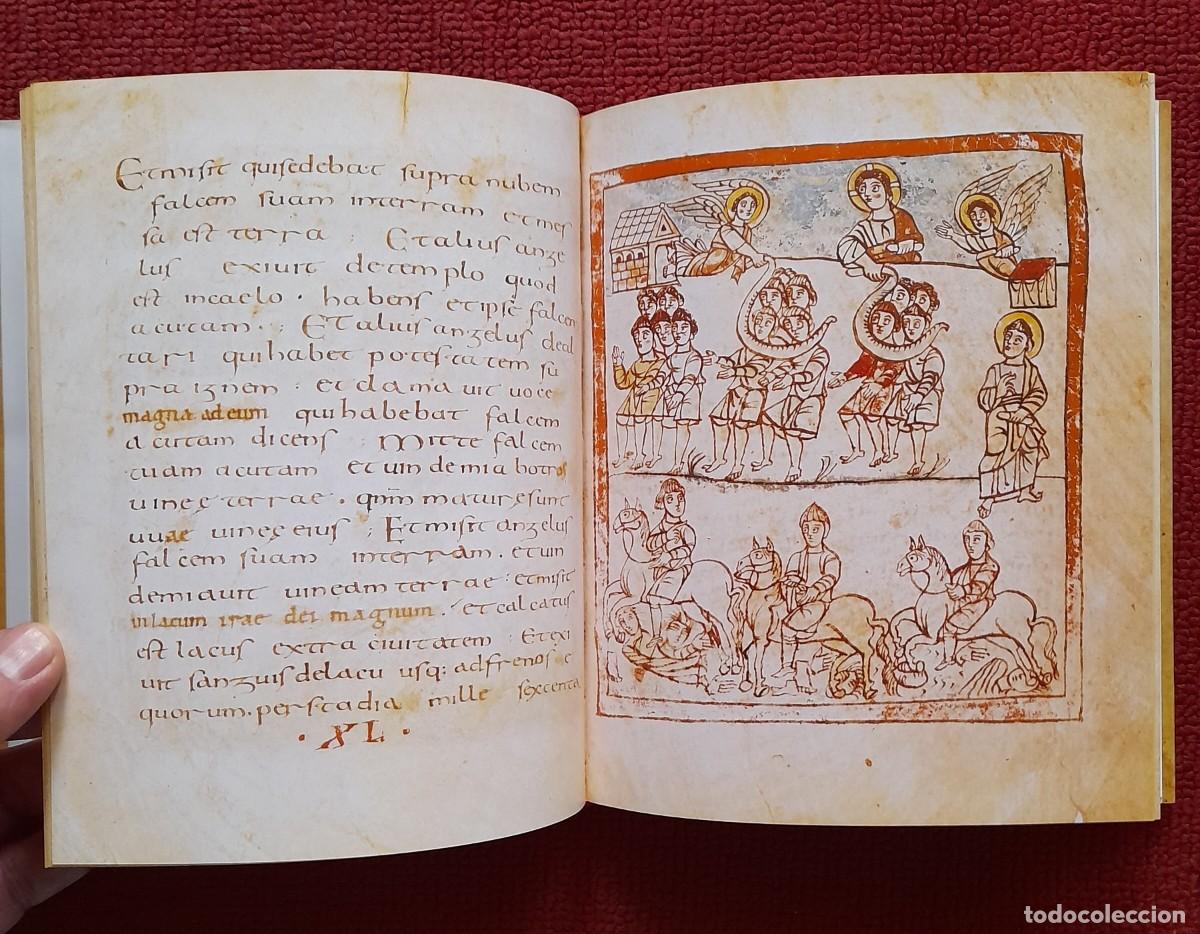 Et misit qui sedebat supra nubem
falcem suam in terram et mes
sa est terra ; Et alius ange
lus exivit de templo quod
est in caelo . habens et ipse falcem
acutam . ; Et alius angelus de al
tari qui habet potestatem su
pra ignem . et clamavit voce
magna ad eum qui habebat falcem
acutam dicens ; Mitte falcem
tuam acutam et vindemia botros
vineę terrae . qm̄ maturę sunt
uvae vineę eius ; Et misit angelus
falcem suam in terram . et vin
demiavit vineam terrae . et misit
in lacum irae dei magnum . et calcatus
est lacus extra civitatem . Et exi
vit sanguis de lacu usq: ad frenos e
quorum . per stadia mille sexcenta
. XL .
todocoleccion